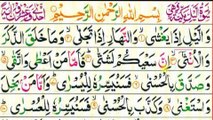 بِسْمِ اللّٰهِ الرَّحْمٰنِ الرَّحِيْمِ
وَالَّيْلِ اِذَا يَغْشٰى ۙ وَالنَّهَارِ اِذَا تَجَلّٰى ۙ وَمَا خَلَقَ الذَّكَرَ
وَالْاُنْثٰٓى ۙ اِنَّ سَعْيَكُمْ لَشَتّٰى ؕ فَاَمَّا مَنْ اَعْطٰى وَاتَّقٰى ۙ
وَصَدَّقَ بِالْحُسْنٰى ۙ فَسَنُيَسِّرُهٗ لِلْيُسْرٰى ؕ وَاَمَّا مَنْۢ بَخِلَ
وَاسْتَغْنٰى ۙ وَكَذَّبَ بِالْحُسْنٰى ۙ فَسَنُيَسِّرُهٗ لِلْعُسْرٰى ؕ